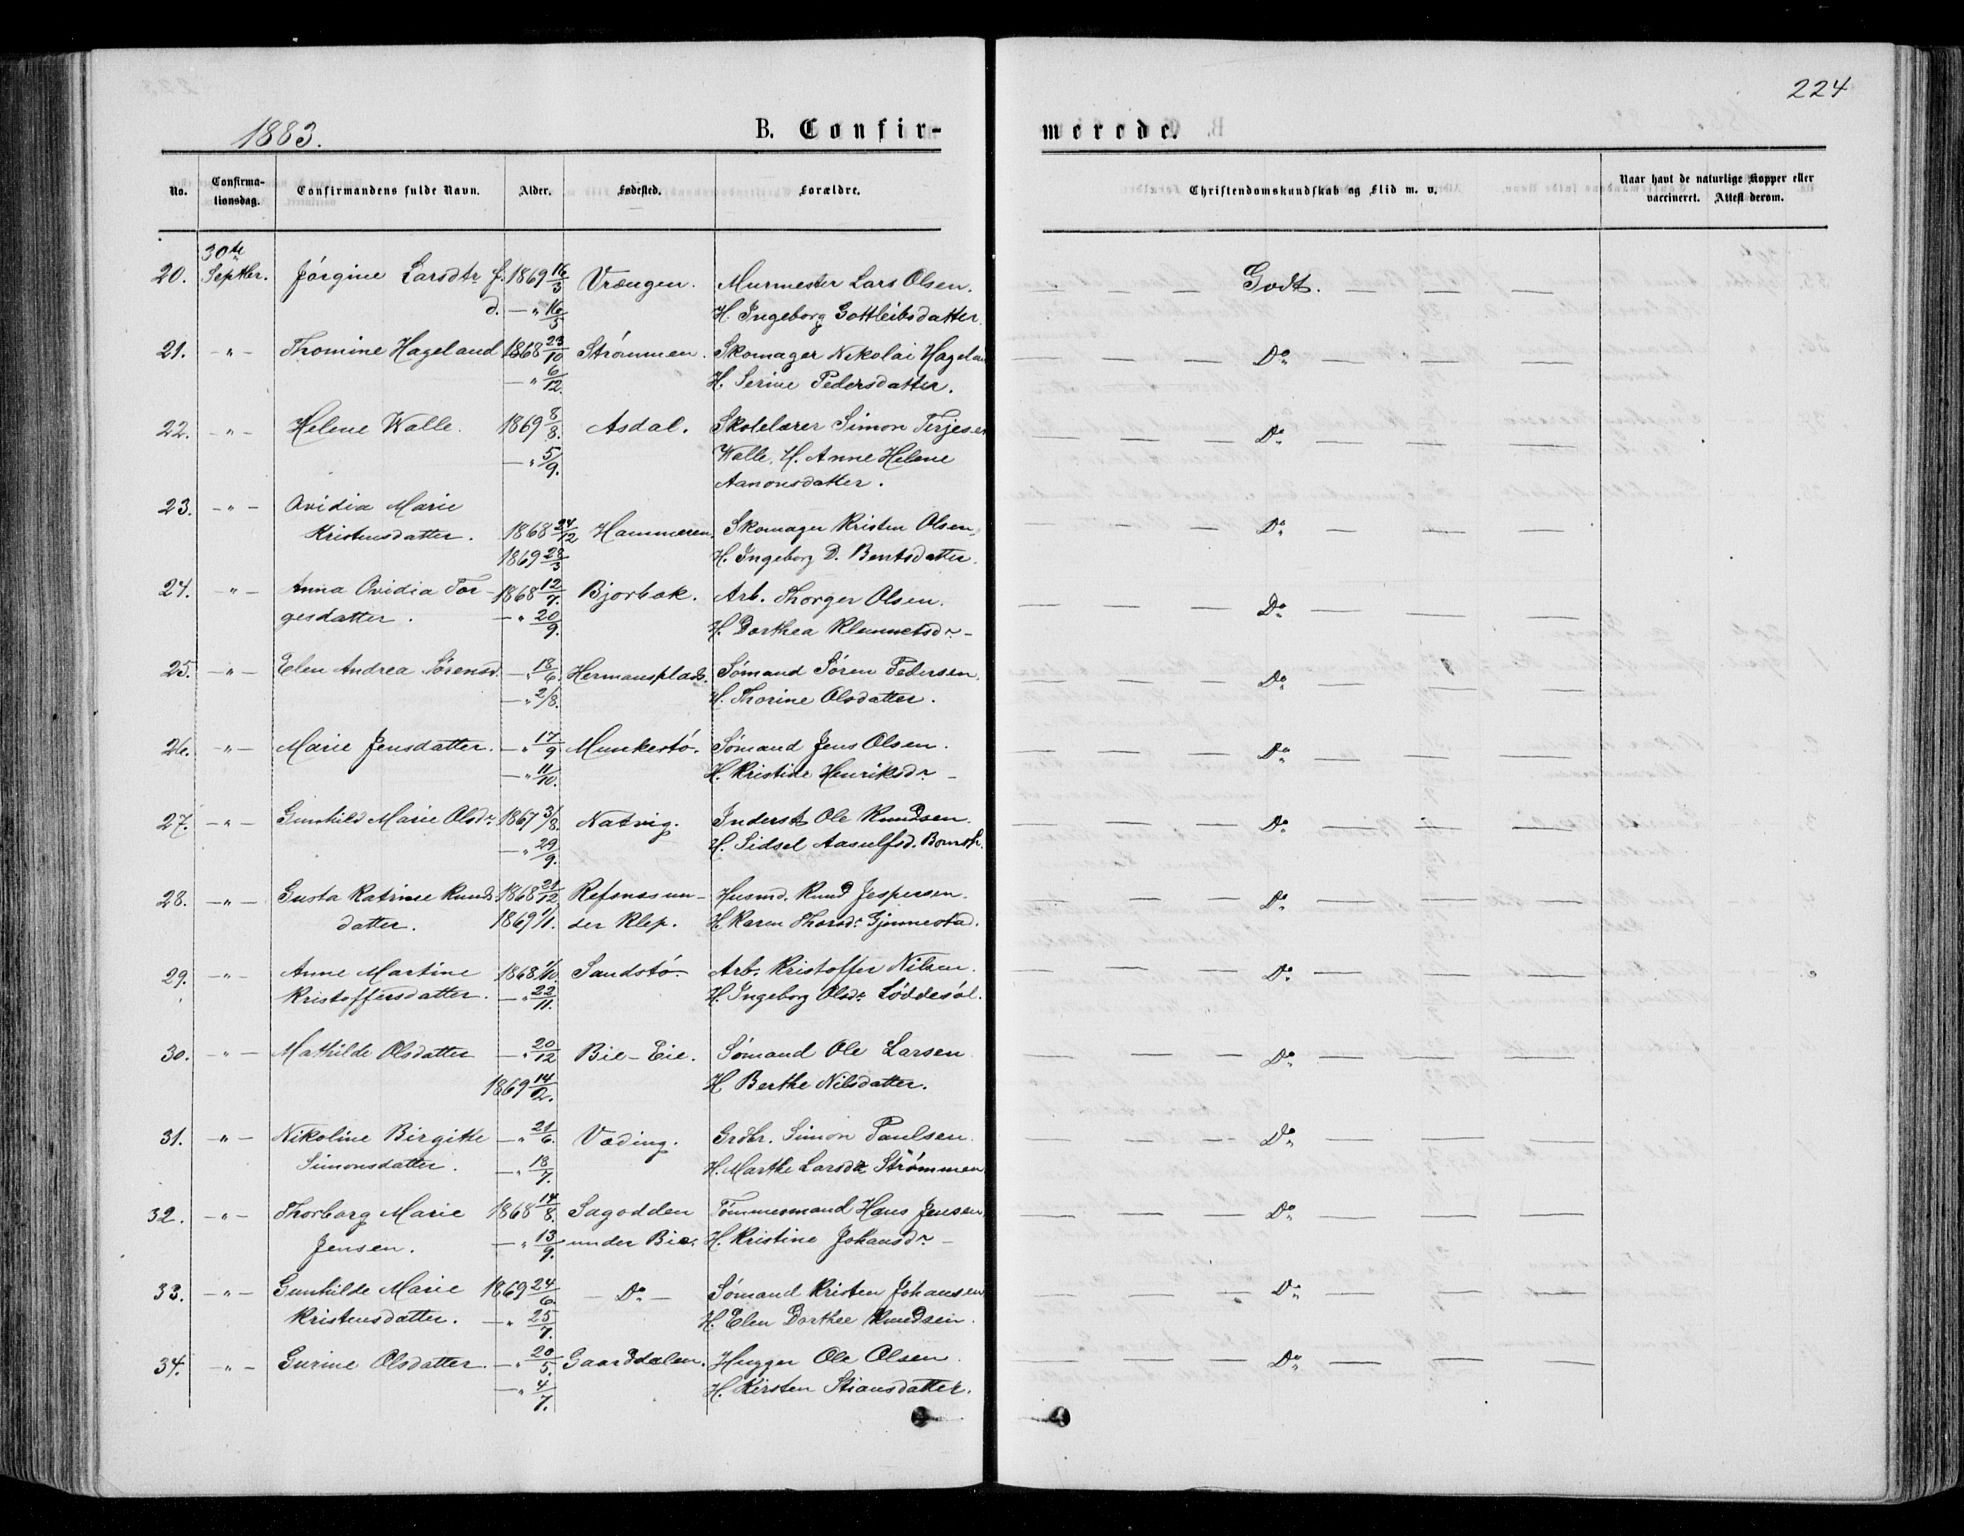 224
1883.
B. Confir-
merede.
No. Confirma-
tionsdag. Confirmandens fulde Navn. Alder. Fødested. Forældre. Christendomskundskab og Flid m. v. Naar havt de naturlige Kopper eller
vaccineret. Attest derom.
30te
20. Septbr. Jørgine Larsdtr. f. 1869 16/3 Vrængen. Murmester Lars Olsen. Godt. — — —
d. — „ 16/5 H. Ingeborg Gottleibsdatter.
21. — „ — Thomine Hageland 1868 23/10 Strømmen. Skomager Nikolai Hagelan — — — Do — — —
— „ 6/12. H. Serine Pedersdatter.
22. — „ — Helene Walle. 1869 8/8. Asdal. Skolelærer Simon Terjesen — — — Do — — —
— „ 5/9. Walle, H. Anne Helene
Aanonsdatter.
23. — „ — Ovidia Marie
Kristensdatter. 1868 24/12 Hammeren. Skomager Kristen Olsen, — — — Do — — —
1869 28/3 H. Ingeborg D. Bentsdatter.
24. — „ — Anna Ovidia Tor- 1868 12/7. Bjorbæk. Arb. Thorger Olsen. — — — Do — — —
gesdatter. — „ 20/9. H. Dorthea Klemmetsdr —
25. — „ — Elen Andrea Sørensd. — „ 18/6. Hermansplads. Sømand Søren Pedersen. — — — Do — — —
— „ 2/8. H. Thorine Olsdatter.
26. — „ — Marie Jensdatter. — „ 17/9 Munkestø. Sømand Jens Olsen. — — — Do — — —
— „ 11/10. H. Kristine Henriksdr —
27. — „ — Gunhild Marie Olsdr 1867 31/8. Natvig. Inderst Ole Knudsen. — — — Do — — —
— „ 29/9. H. Sidsel Aasulfsd.
28. — „ — Gusta Katrine Knuds 1868 21/12. Refsnes un- Husmd. Knud Jespersen. — — — Do — — —
datter. 1869 1/1. der Klep. H. Karen Thorsdr Gjennestad.
29. — „ — Anne Martine 1868 1/10. Sandstø. Arb. Kristoffer Nilsen. — — — Do — — —
Kristoffersdatter. — „ 22/11. H. Ingeborg Olsdr Løddesøl.
30. — „ — Mathilde Olsdatter — „ 20/12 Bie-Eie. Sømand Ole Larsen. — — — Do — — —
1869 14/2. H. Berthe Nilsdatter.
31. — „ — Nikoline Birgitte — „ 21/6. Væding. Grdbr. Simon Paulsen. — — — Do — — —
Simonsdatter. — „ 18/7. H. Marthe Larsdr Strømmen
32. — „ — Thorborg Marie 1868 14/8. Sagodden Tømmermand Hans Jensen, — — — Do — — —
Jensen. — „ 13/9. under Bie. H. Kristine Johansdr —
33. — „ — Gunhilde Marie 1869 24/6. — Do — Sømand Kristen Johansen — — — Do — — —
Kristensdatter. — „ 25/7. H. Elen Dorthee Knudsen.
34. — „ — Gurine Olsdatter. — „ 20/5. Gaarddalen. Hugger Ole Olsen. — — — Do — — —
— „ 4/7. H. Kirsten Stiansdatter.